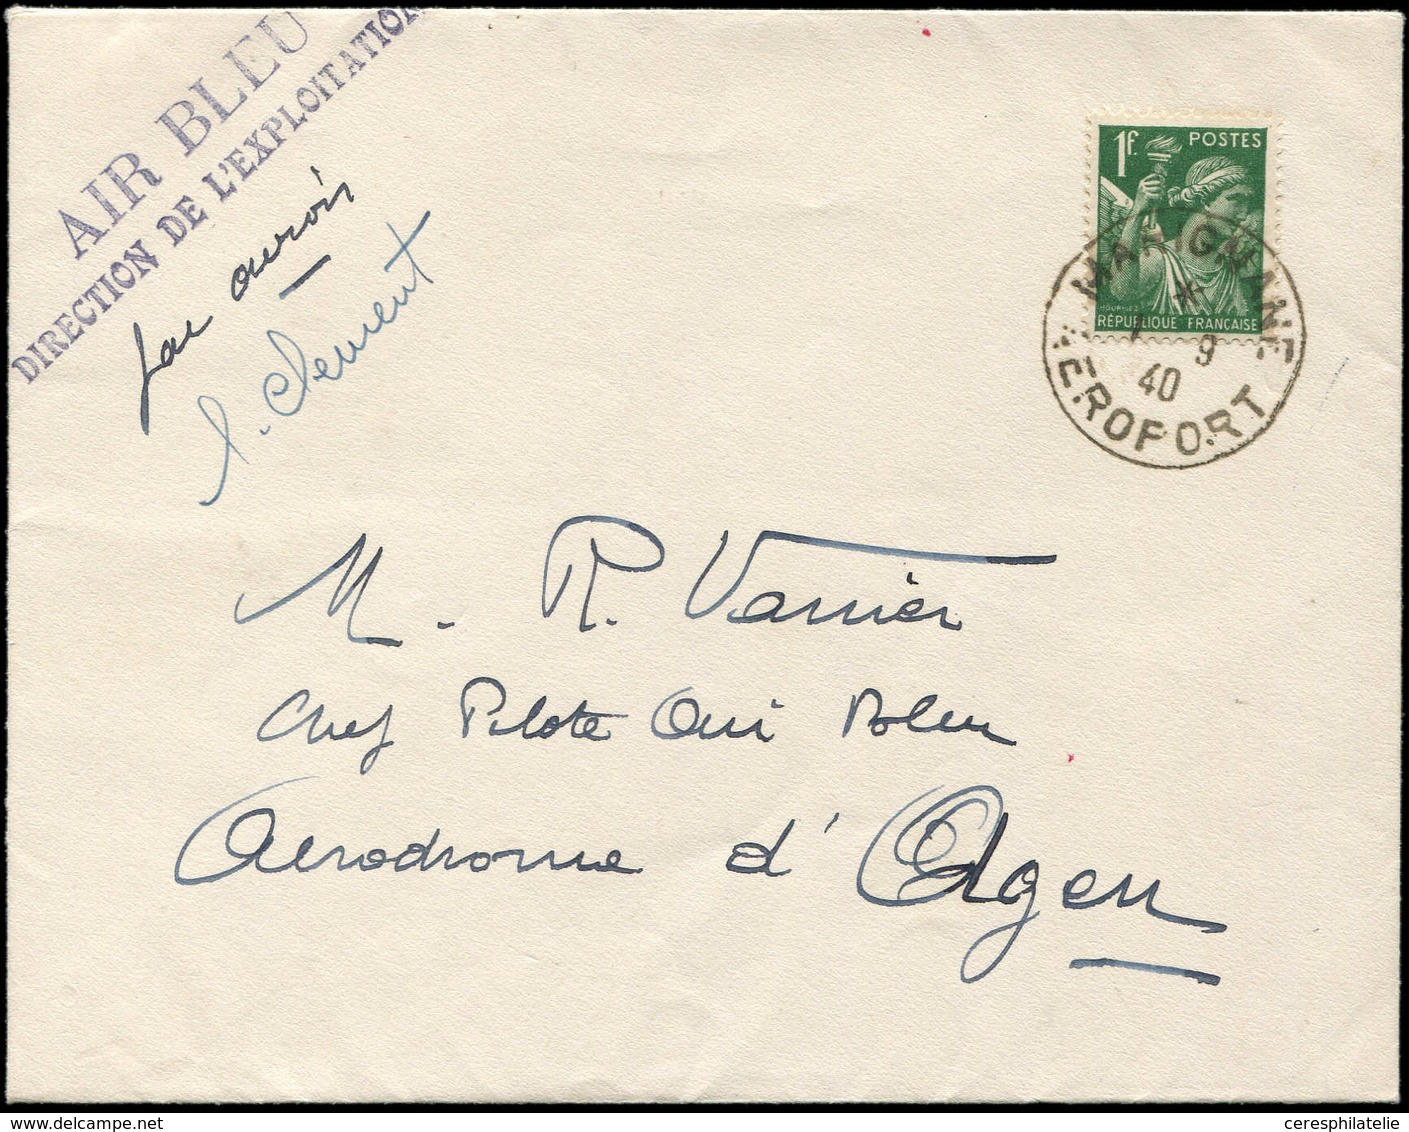 AIR BLEU
DIRECTION DE L'EXPLOITATION
par avion
L. Clement
1F. POSTES
RÉPUBLIQUE FRANÇAISE
MARIGNANE
*
1 9
40
AEROPORT
M. R. Vanier
Chef Pilote Air Bleu
Aérodrome d'Agen
delcampe.net
ceresphilatelie